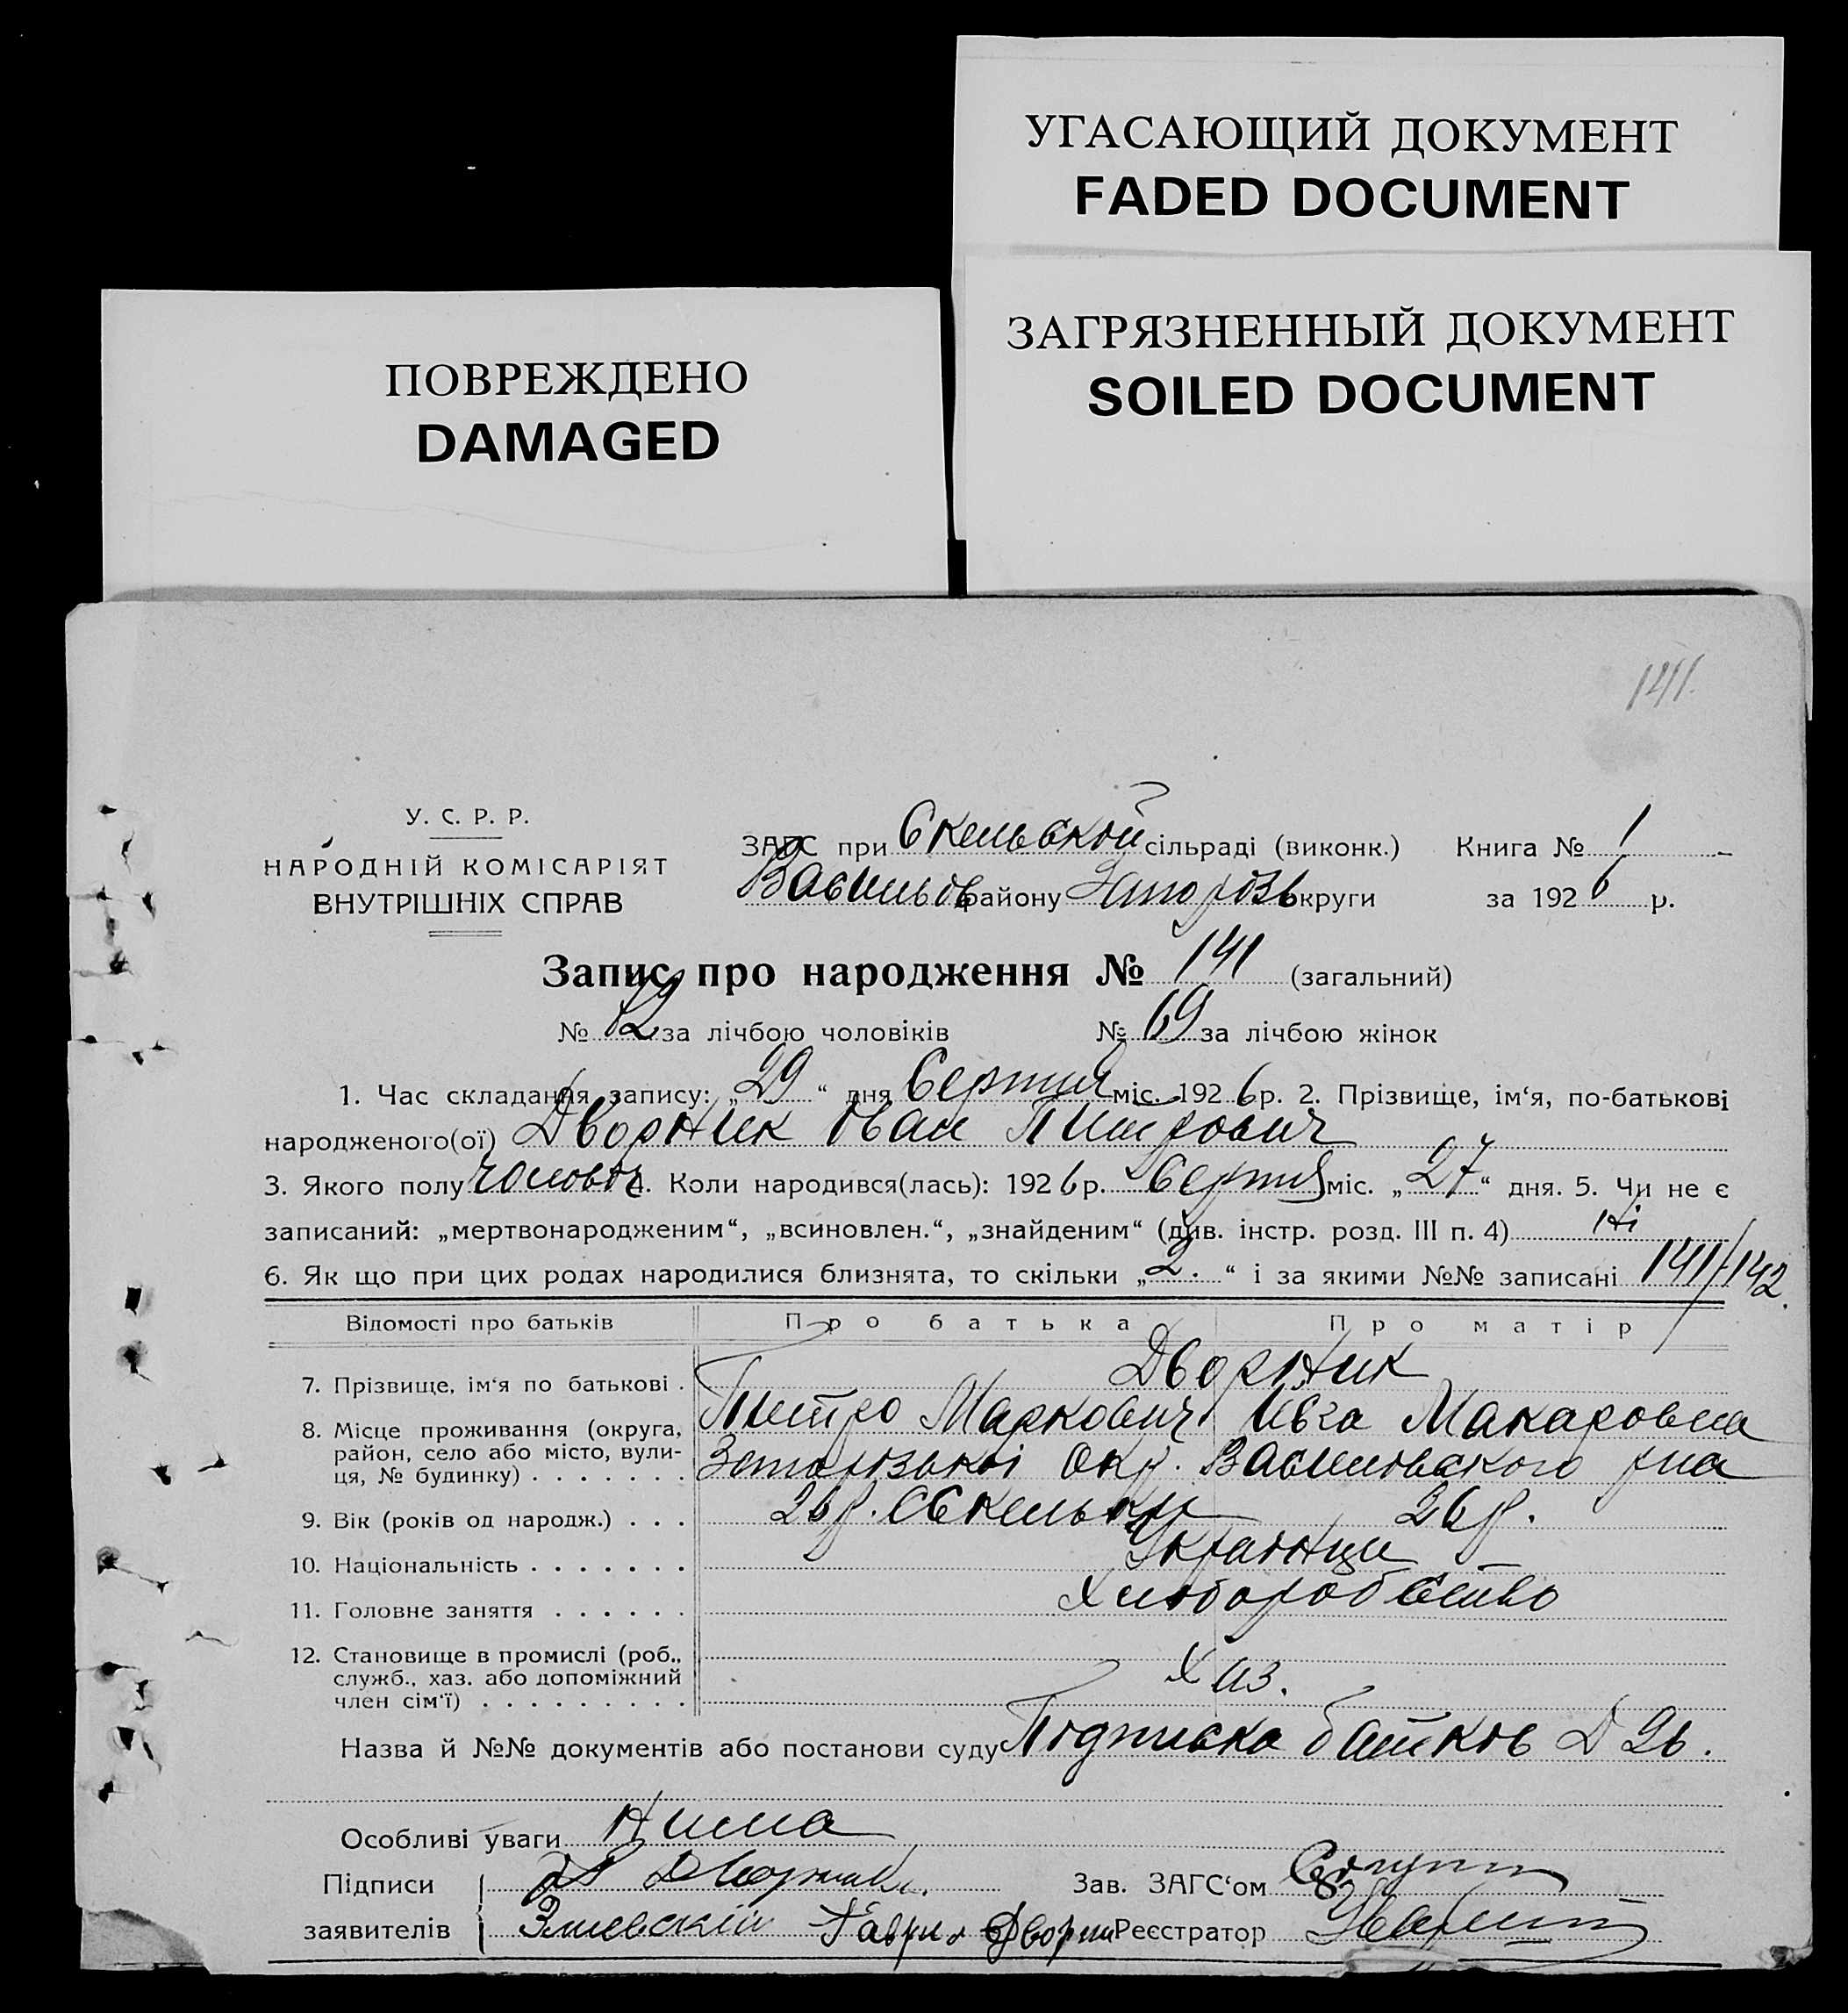 УГАСАЮЩИЙ ДОКУМЕНТ
FADED DOCUMENT
ЗАГРЯЗНЕННЫЙ ДОКУМЕНТ
SOILED DOCUMENT
ПОВРЕЖДЕНО
DAMAGED
141.
У. С. Р. Р.
НАРОДНІЙ КОМІСАРІЯТ
ВНУТРІШНІХ СПРАВ
ЗАГС при Скельской сільраді (виконк.) Книга № 1
Васильов району Запорізь округи за 1926 р.
Запис про народження № 141 (загальний)
№ 72 за лічбою чоловіків № 69 за лічбою жінок
1. Час складання запису: „29“ дня Серпня міс. 1926 р. 2. Прізвище, ім‘я, по-батькові
народженого(ої) Дворник Іван Питрович
3. Якого полу чоловіч 4. Коли народився(лась): 1926 р. Серпня міс. „27“ дня. 5. Чи не є
записаний: „мертвонародженим“, „всиновлен.“, „знайденим“ (див. інстр. розд. III п. 4) ні
6. Як що при цих родах народилися близнята, то скільки „2.“ і за якими №№ записані 141/142.
Відомості про батьків Про батька Про матір
7. Прізвище, ім‘я по батькові . Дворник
Питро Маркович Ивга Макаровна
8. Місце проживання (округа,
район, село або місто, вули-
ця, № будинку) . . . . . . . Запорізькоі Окр. Василівского рна
9. Вік (років од народж.) . . . 26 р. С Скельки 26 р.
10. Національність . . . . . . . Украінци
11. Головне заняття . . . . . . Хліборобство
12. Становище в промислі (роб.,
служб., хаз. або допоміжний
член сім‘ї) . . . . . . . . . Хаз.
Назва й №№ документів або постанови суду Підписка батьків
Особливі уваги Нима
Підписи Дворник Зав. ЗАГС‘ом
заявителів Змиевский Гаврил Дворни Реєстратор